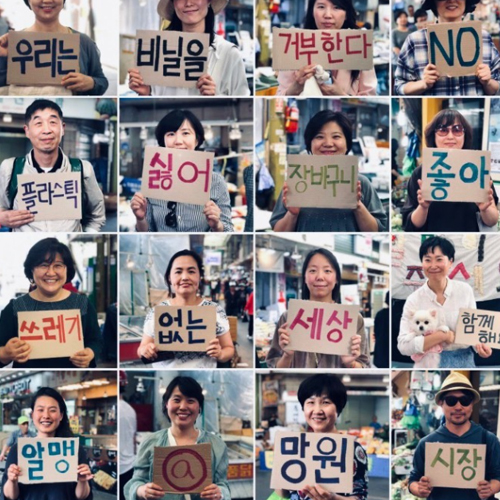 우리는 비닐을 거부한다 NO
플라스틱 싫어 장바구니 좋아
쓰레기 없는 세상 함께해요
알맹 @ 망원 시장